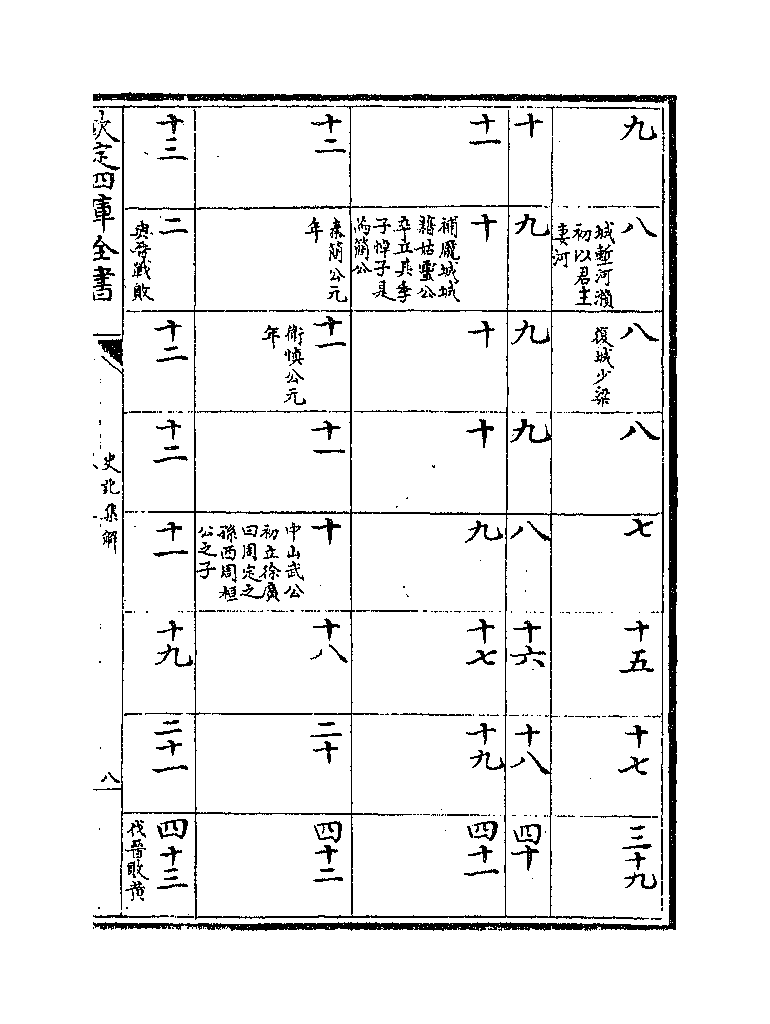 九
八
城塹河瀕
初以君主
妻河
八
復城少梁
八
七
十五
十七
三十九
十
九
九
九
八
十六
十八
四十
十一
十
補龐城城
籍姑靈公
卒立其季
子悼子是
為簡公
十
十
九
十七
十九
四十一
十二
秦簡公元
年
十一
衛慎公元
年
十一
十
中山武公
初立徐廣
曰周定之
孫西周桓
公之子
十八
二十
四十二
十三
二
與晉戰敗
十二
十二
十一
十九
二十一
四十三
伐晉敗黃
欽定四庫全書
史記集解
八